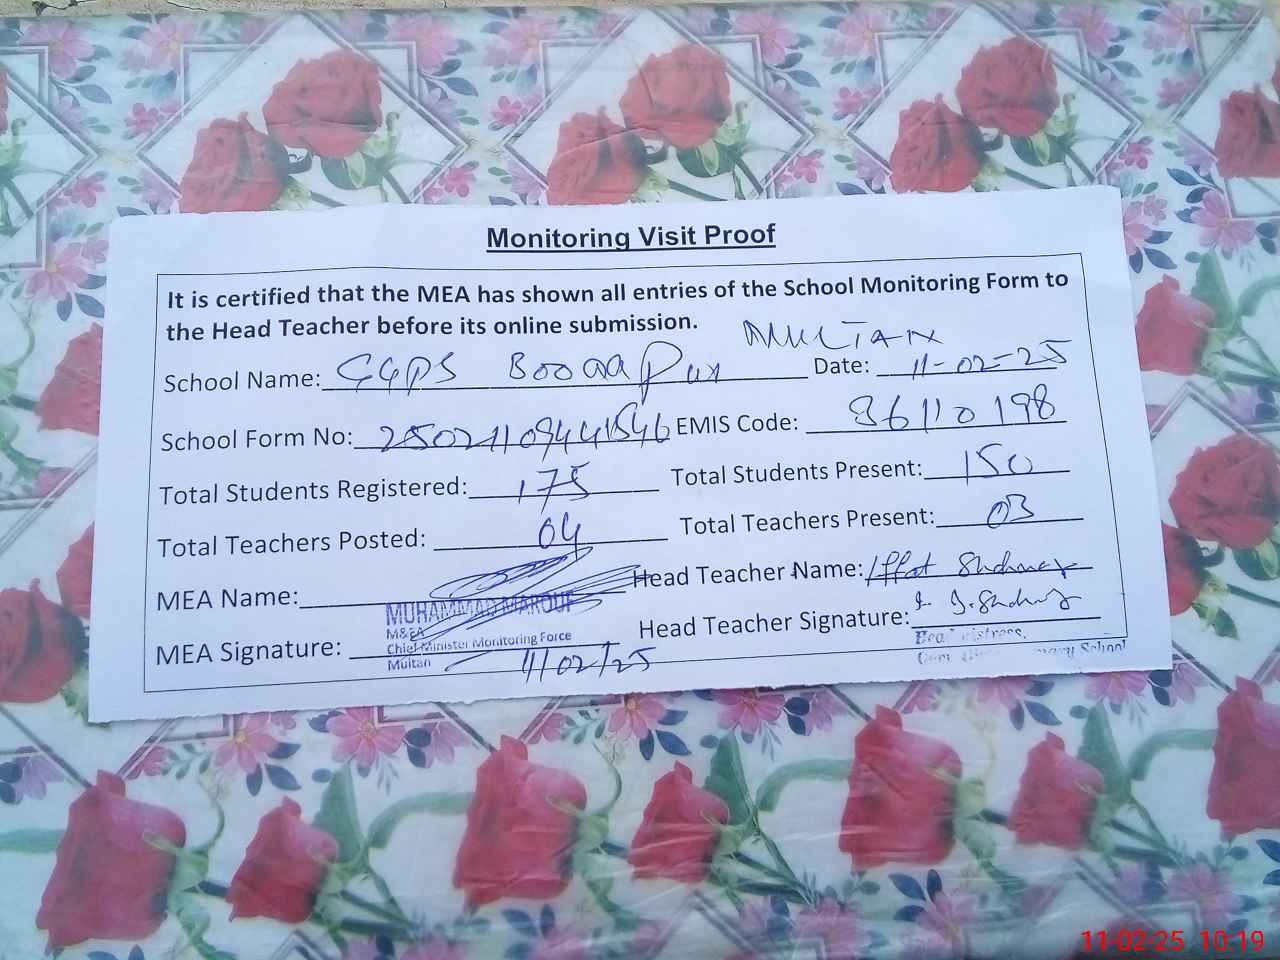 Monitoring Visit Proof
It is certified that the MEA has shown all entries of the School Monitoring Form to
the Head Teacher before its online submission.
MULTAN
School Name: GGPS Booaa Pur Date: 11-02-25
School Form No: 250211094441546 EMIS Code: 36110198
Total Students Registered: 175 Total Students Present: 150
Total Teachers Posted: 04 Total Teachers Present: 03
MEA Name: Head Teacher Name: Iffat
MUHAMMAD MAROUF
M&EA
Chief Minister Monitoring Force
Multan
MEA Signature: 11/02/25 Head Teacher Signature:
School
11-02-25 10:19